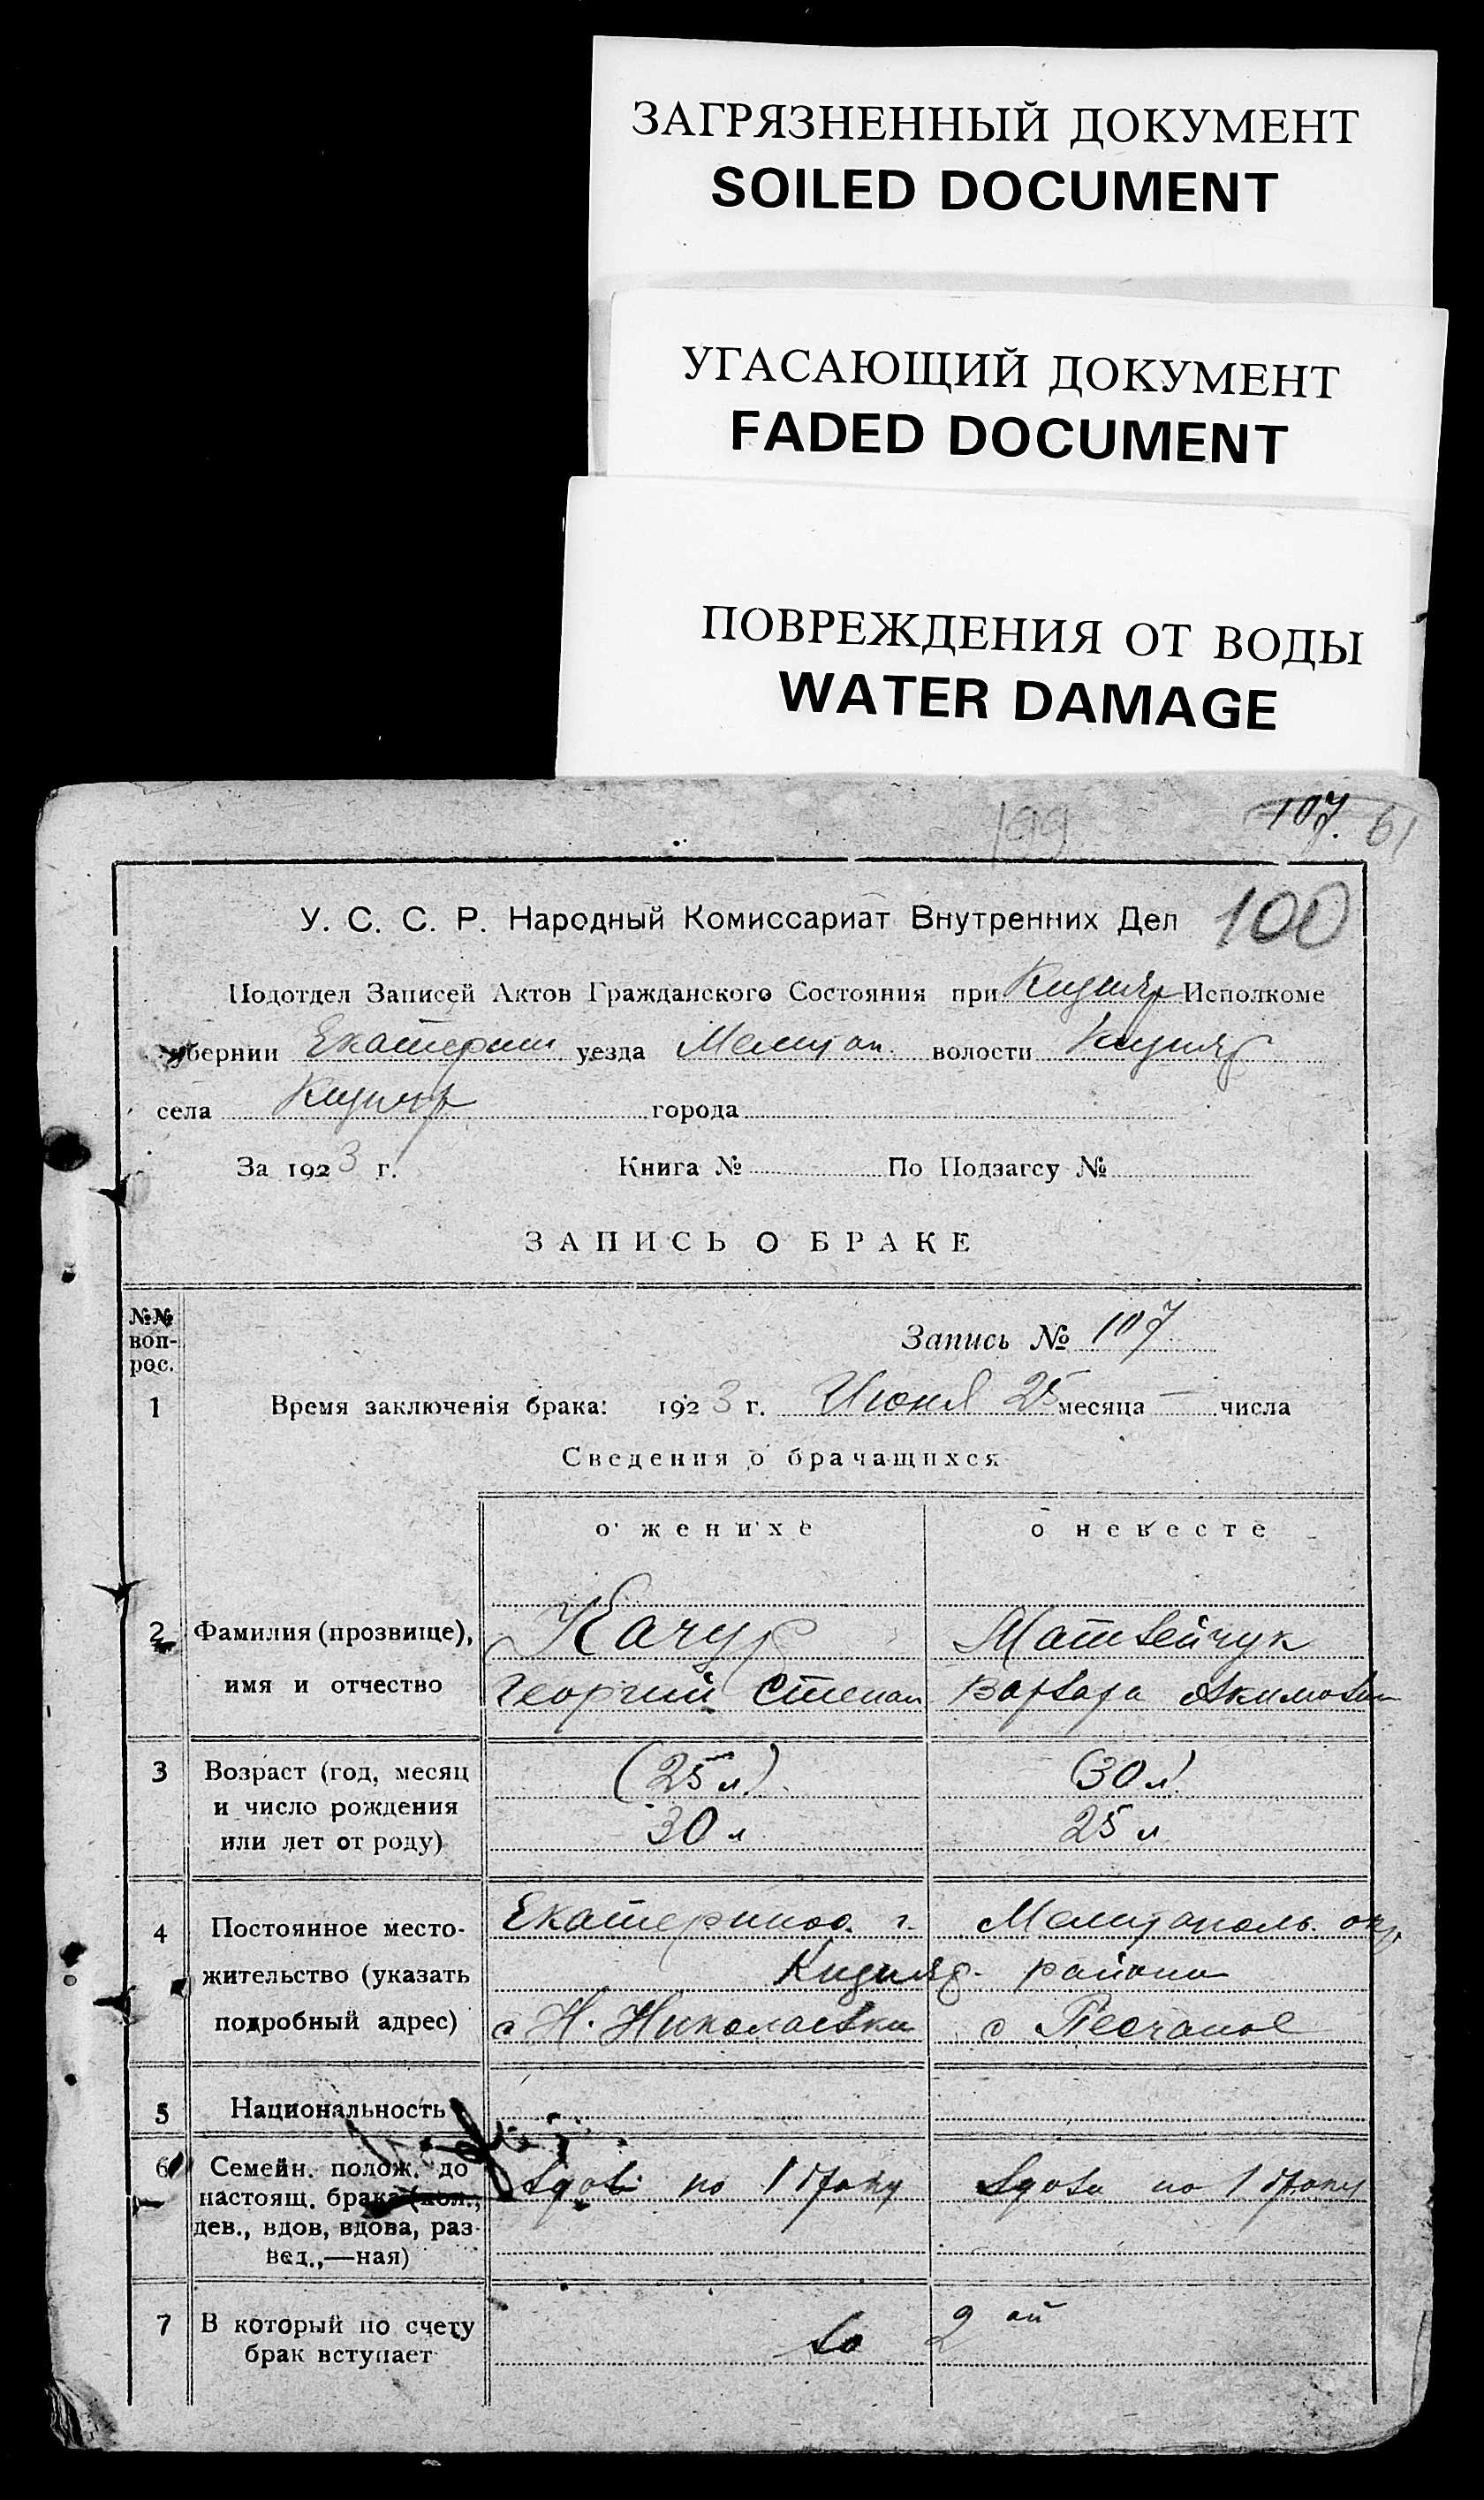 ЗАГРЯЗНЕННЫЙ ДОКУМЕНТ
SOILED DOCUMENT
УГАСАЮЩИЙ ДОКУМЕНТ
FADED DOCUMENT
ПОВРЕЖДЕНИЯ ОТ ВОДЫ
WATER DAMAGE
199 107. 61
У. С. С. Р. Народный Комиссариат Внутренних Дел 100
Подотдел Записей Актов Гражданского Состояния при Кизияр Исполкоме
губернии Екатерин уезда Мелитоп. волости Кизияр
села Кизияр города
За 1923 г. Книга № По Подзагсу №
ЗАПИСЬ О БРАКЕ
№№ вопрос.
Запись № 107
1 Время заключенія брака: 1923 г. Июня 25 месяца — числа
Сведения о брачащихся
о женихе о невесте
2 Фамилия (прозвище), Качур Матвейчук
имя и отчество Георгий Степан Варвара Акимовн
3 Возраст (год, месяц (25 л) (30 л)
и число рождения 30 л 25 л
или лет от роду)
4 Постоянное место- Екатеринос. г. Мелитополь. окр.
жительство (указать Кизияр. района
подробный адрес) с Н. Николаевки с Песчаное
5 Национальность
6 Семейн. полож. до
настоящ. брака (хол., вдов по 1 браку вдова по 1 браку
дев., вдов, вдова, раз-
вед.,—ная)
7 В который по счету во 2 ой
брак вступает